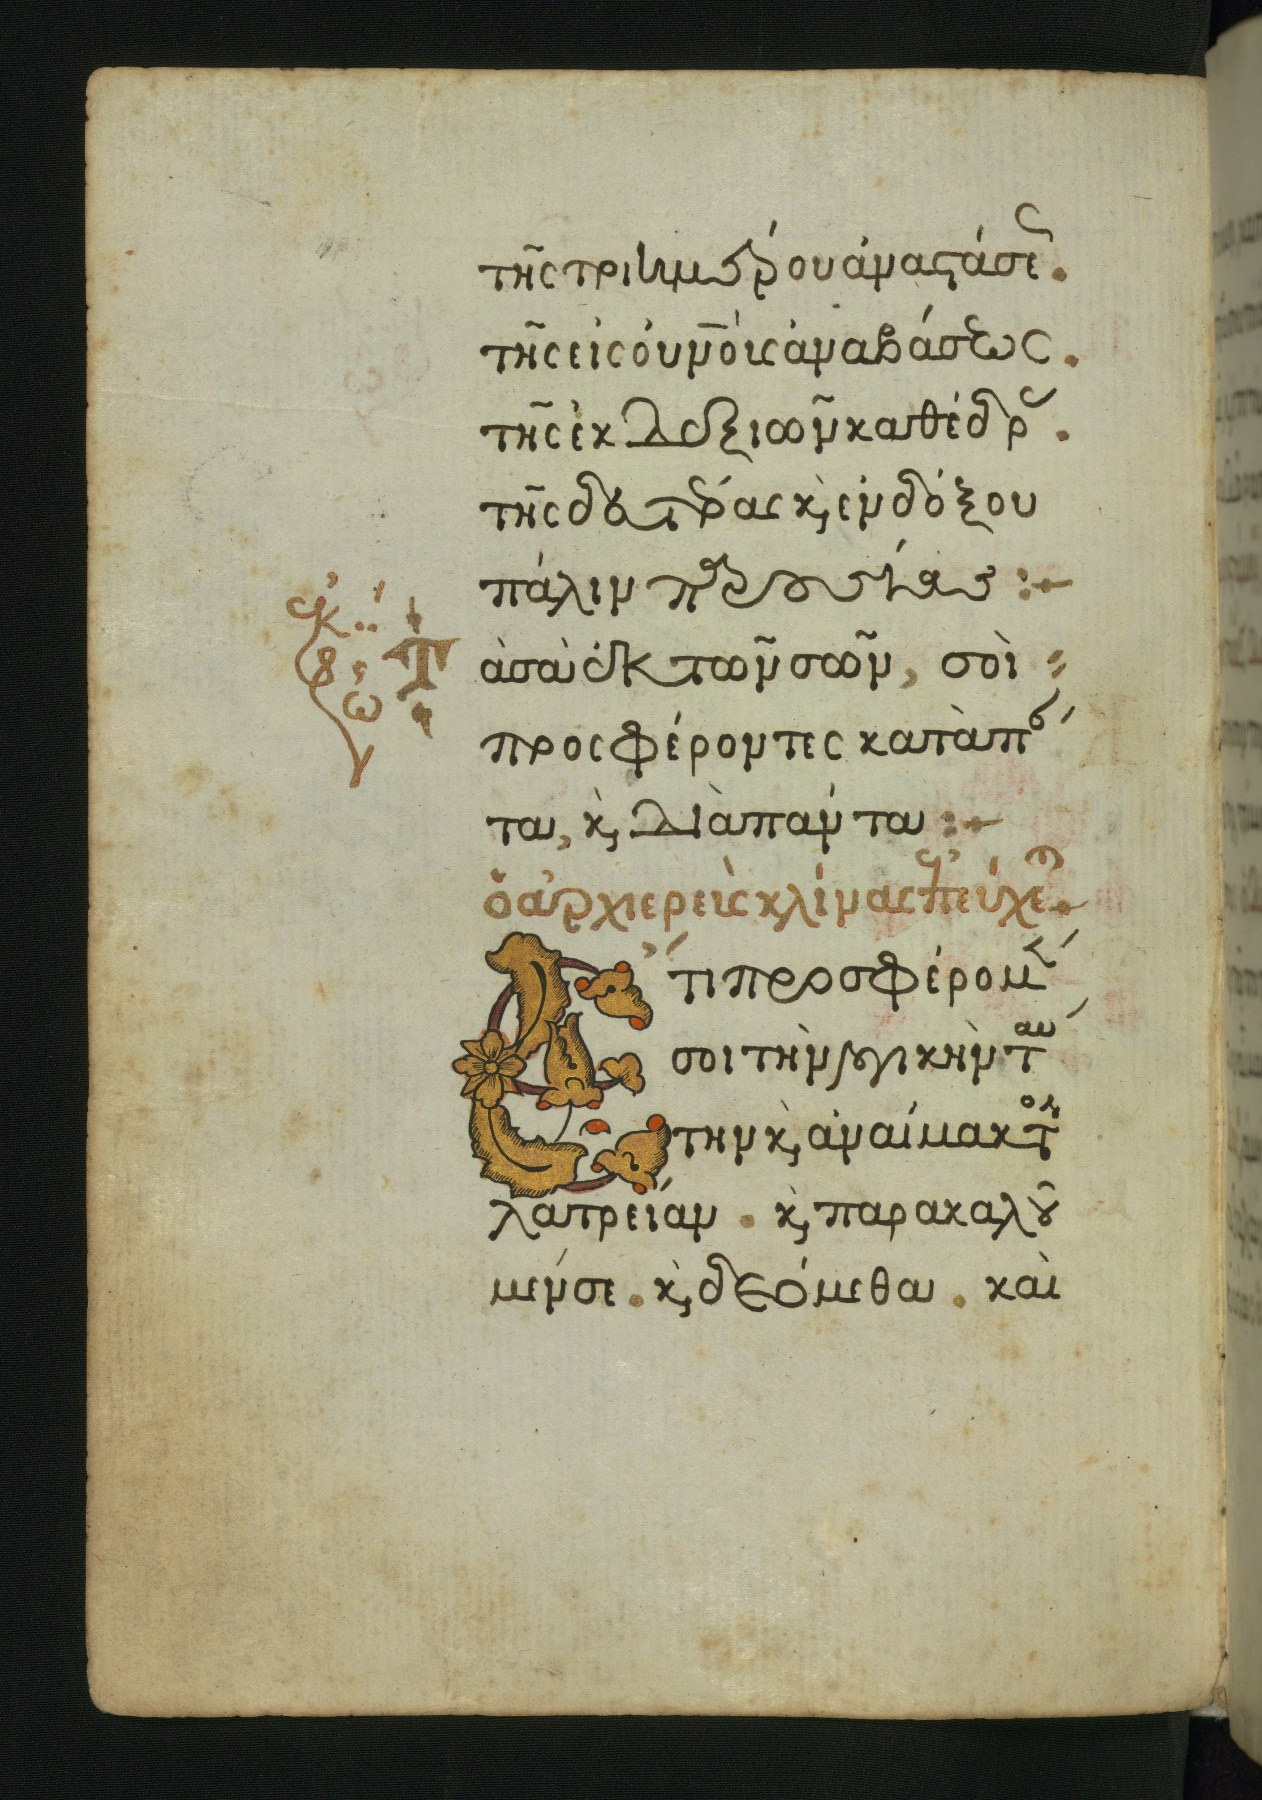 τῆς τριημέρου ἀναστάσε.
τῆς εἰς οὐνοὺς ἀναβάσεως.
τῆς ἐκ δεξιῶν καθέδρας.
τῆς δευτέρας κ, ἐνδόξου
πάλιν παρουσίας :
Τὰ σὰ ἐκ τῶν σῶν, σοὶ
προσφέροντες κατὰ πάν
τα, κ, διὰ πάντα :
ὁ ἀρχιερεὺς κλίνας ἐπεύχε
Ἔτι προσφέρομέν
σοι τὴν λογικὴν ταύ
την κ, ἀναίμακτον
λατρείαν . κ, παρακαλοῦ
μέν σε . κ, δεόμεθα . καὶ